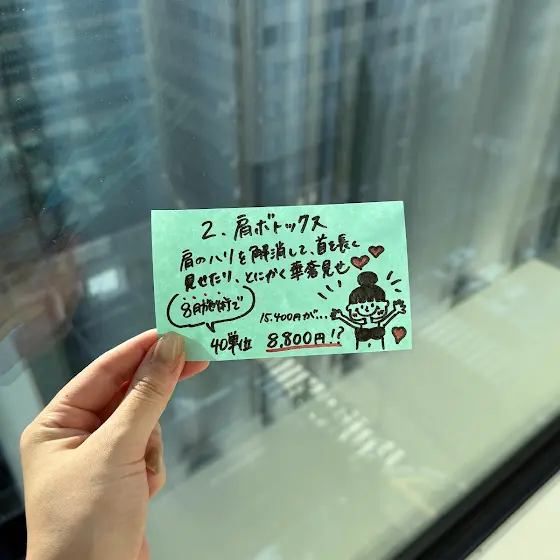 2. 肩ボトックス
肩のハリを解消して、首を長く
見せたり、とにかく華奢見せ
8月施術で
15.400円が...
40単位 8,800円!?